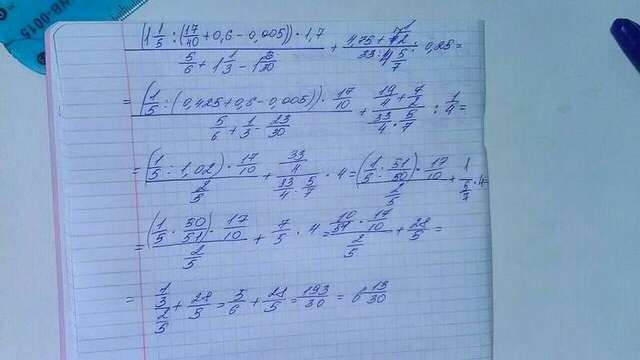 (1 1/5 : (17/40 + 0,6 - 0,005)) · 1,7 / (5/6 + 1 1/3 - 1 23/30) + (4,75 + 7 1/2) / (33 : 4 5/7) : 0,25 =
= (1/5 : (0,425 + 0,6 - 0,005)) · 17/10 / (5/6 + 1/3 - 23/30) + (19/4 + 7/2) / (33/4 · 5/7) : 1/4 =
= (1/5 : 1,02) · 17/10 / (2/5) + (33/4) / (33/4 · 5/7) · 4 = (1/5 : 51/50) · 17/10 / (2/5) + 1 / (5/7) · 4
= (1/5 · 50/51) · 17/10 / (2/5) + 7/5 · 4 = 10/51 · 17/10 / (2/5) + 28/5 =
= (1/3) / (2/5) + 28/5 = 5/6 + 28/5 = 193/30 = 6 13/30